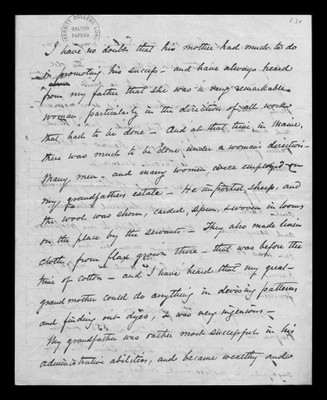 I have no doubt that his mother had much to do
in promoting his success - and have always heard
from my father that she was a very remarkable
woman, particularly in the direction of all work
that had to be done - And at that time in Maine,
there was much to be done under a woman's direction -
Many, men - and many women were employed on
my grandfathers estate - He imported sheep, and
the wool was shorn, carded, spun, & woven in looms
on the place by the servants - They also made linen
cloth, from flax grown there - that was before the
time of cotton - and I have heard that my great-
grandmother could do anything in devising patterns
and finding out dyes, & was very ingenious -
My grandfather was rather most successful in his
administrative abilities, and became wealthy and a
GALTON
PAPERS